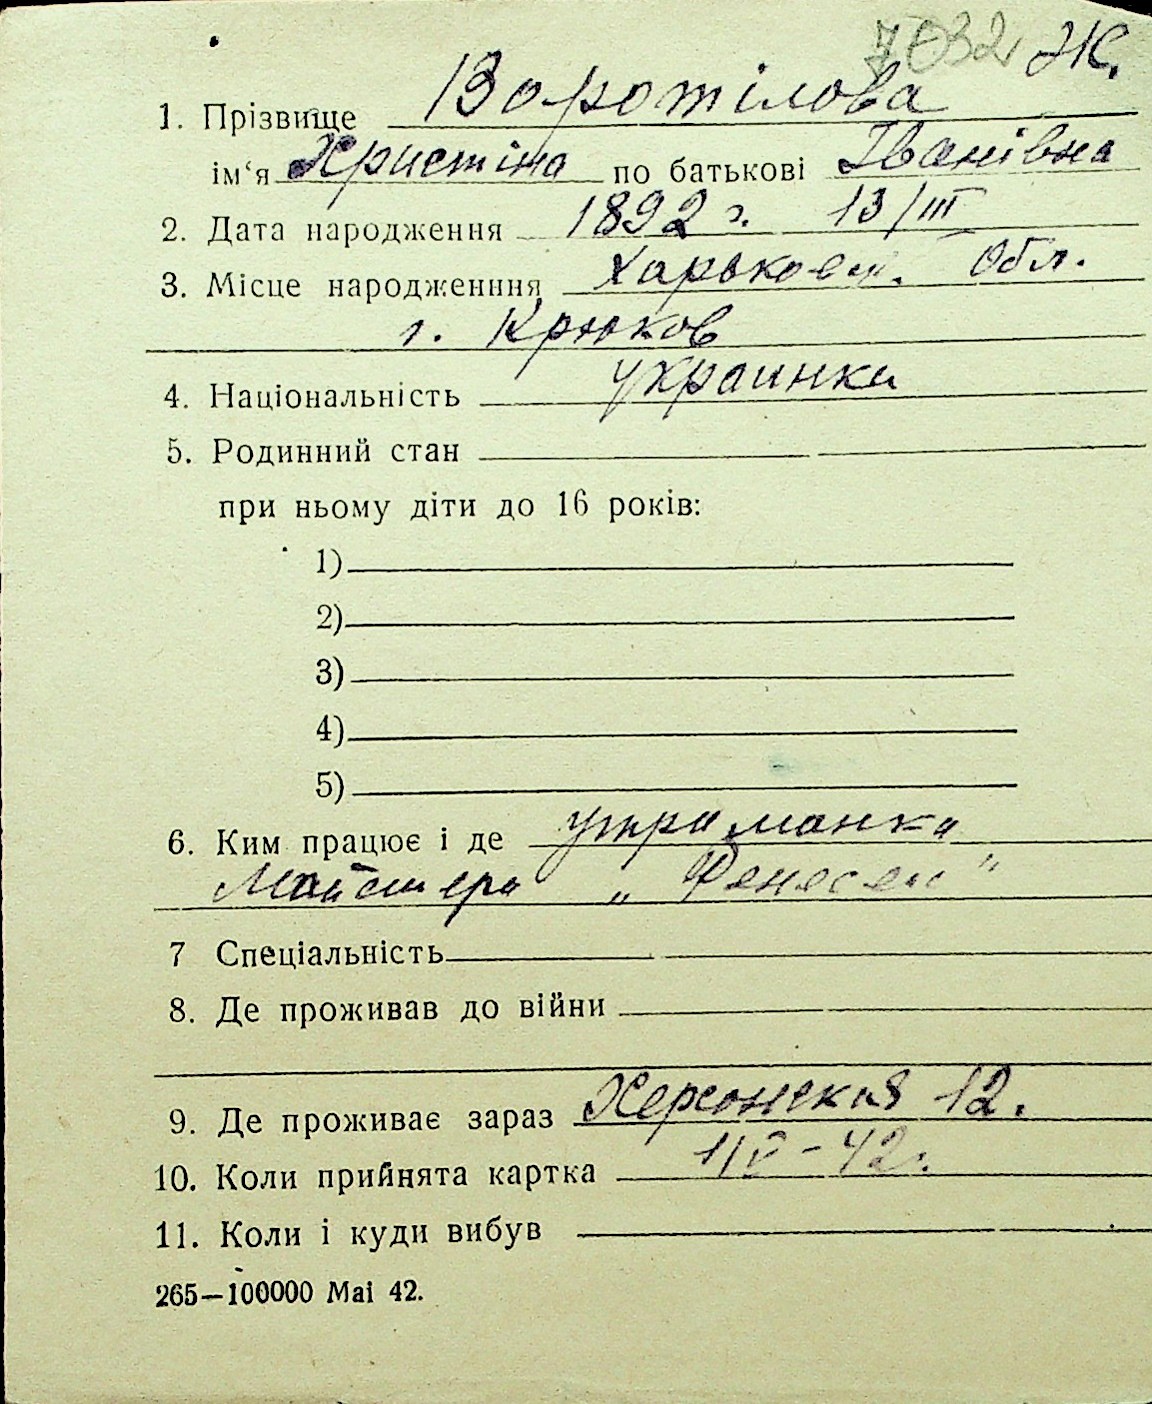 7032 Ж.
1. Прізвище Воротілова
ім‘я Христіна по батькові Іванівна
2. Дата народження 1892 г. 13/III
3. Місце народженння Харьковск. Обл.
г. Крюков
4. Національність украинка
5. Родинний стан
при ньому діти до 16 років:
1)
2)
3)
4)
5)
6. Ким працює і де утриманка
Майстера
7 Спеціальність
8. Де проживав до війни
9. Де проживає зараз Херсонская 12.
10. Коли прийнята картка 1/V-42г.
11. Коли і куди вибув
265—100000 Mai 42.